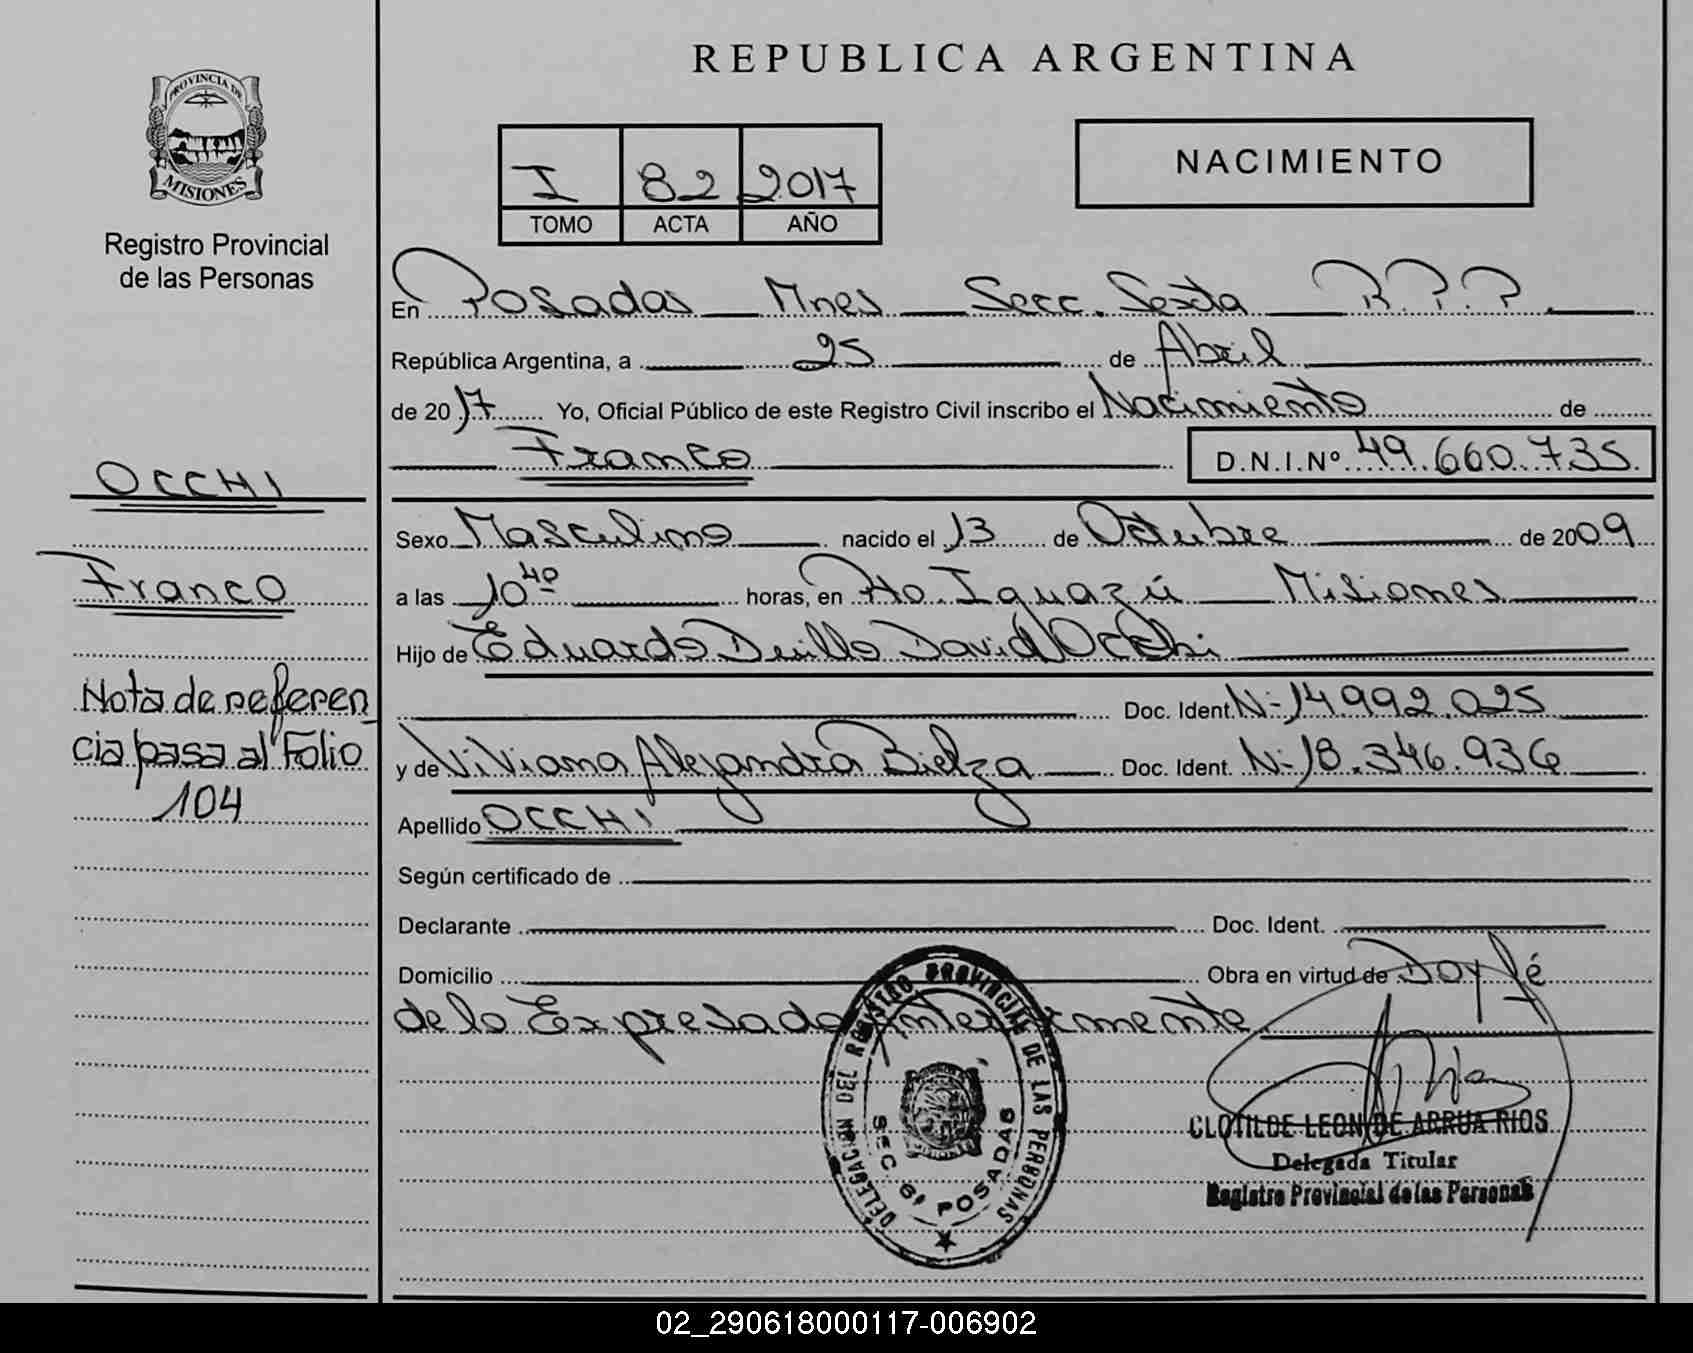 REPUBLICA ARGENTINA
PROVINCIA DE
MISIONES
Registro Provincial
de las Personas
I 82 2017
TOMO ACTA AÑO
NACIMIENTO
En Posadas Mnes Secc. Sexta R.P.P.
República Argentina, a 25 de Abril
de 2017 Yo, Oficial Público de este Registro Civil inscribo el Nacimiento de
Franco D.N.I.Nº 49.660.735.
OCCHI
Franco
Nota de referen
cia pasa al Folio
104
Sexo Masculino nacido el 13 de Octubre de 2009
a las 10 40 horas, en Pto. Iguazú Misiones
Hijo de Eduardo Duilio David Occhi
Doc. Ident. Nº 14.992.025
y de Viviana Alejandra Bielza Doc. Ident. Nº 18.346.936
Apellido OCCHI
Según certificado de
Declarante Doc. Ident.
Domicilio Obra en virtud de Doy fé
de lo Expresado
DELEGACION DEL REGISTRO PROVINCIAL DE LAS PERSONAS
SEC. 6ª POSADAS
CLOTILDE LEON DE ARRUA RIOS
Delegada Titular
Registro Provincial de las Personas
02_290618000117-006902